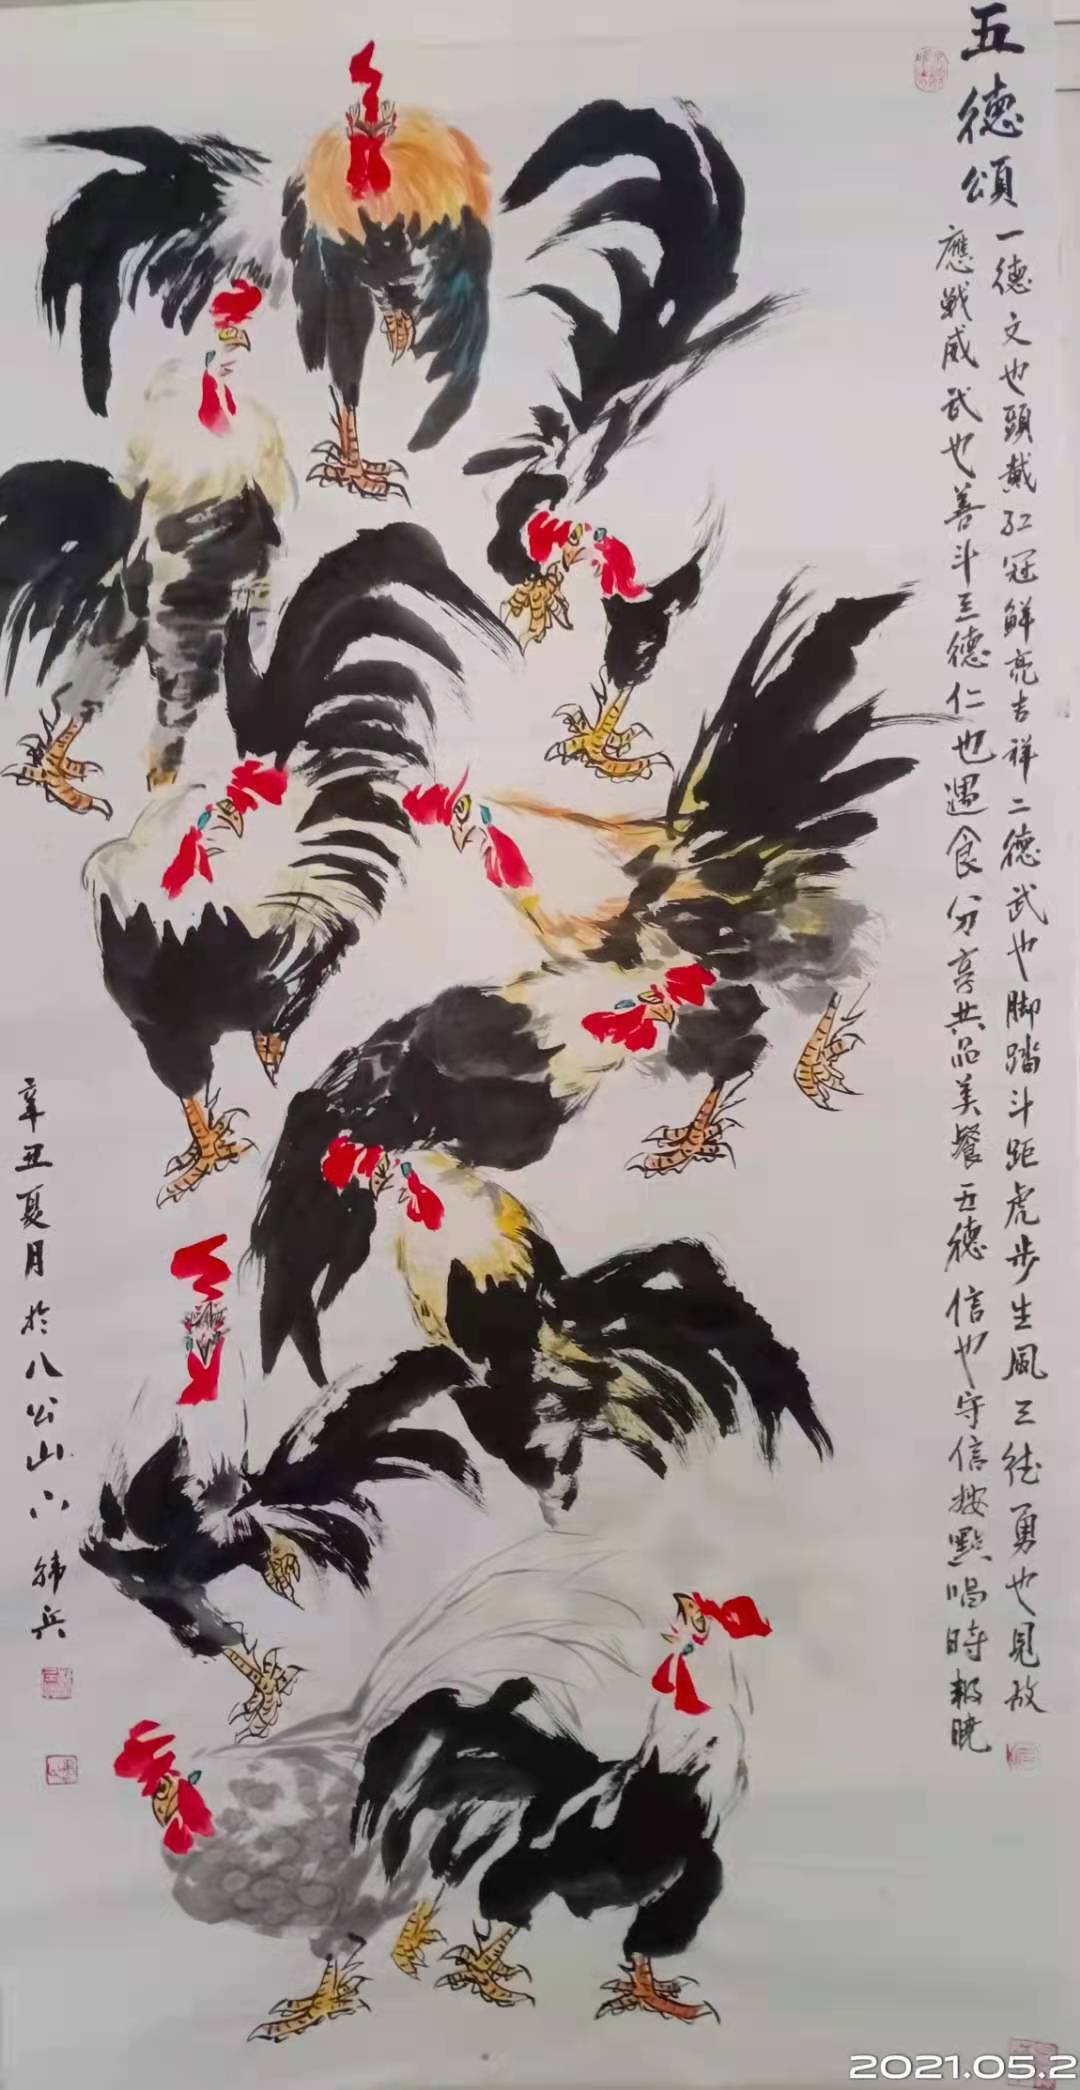 五德頌
一德文也頭戴红冠鮮亮吉祥二德武也脚踏斗距虎步生風三德勇也見敌
應戰威武也善斗三德仁也遇食分享共品美餐五德信也守信按點唱時報曉
辛丑夏月於八公山下 韩兵
2021.05.2